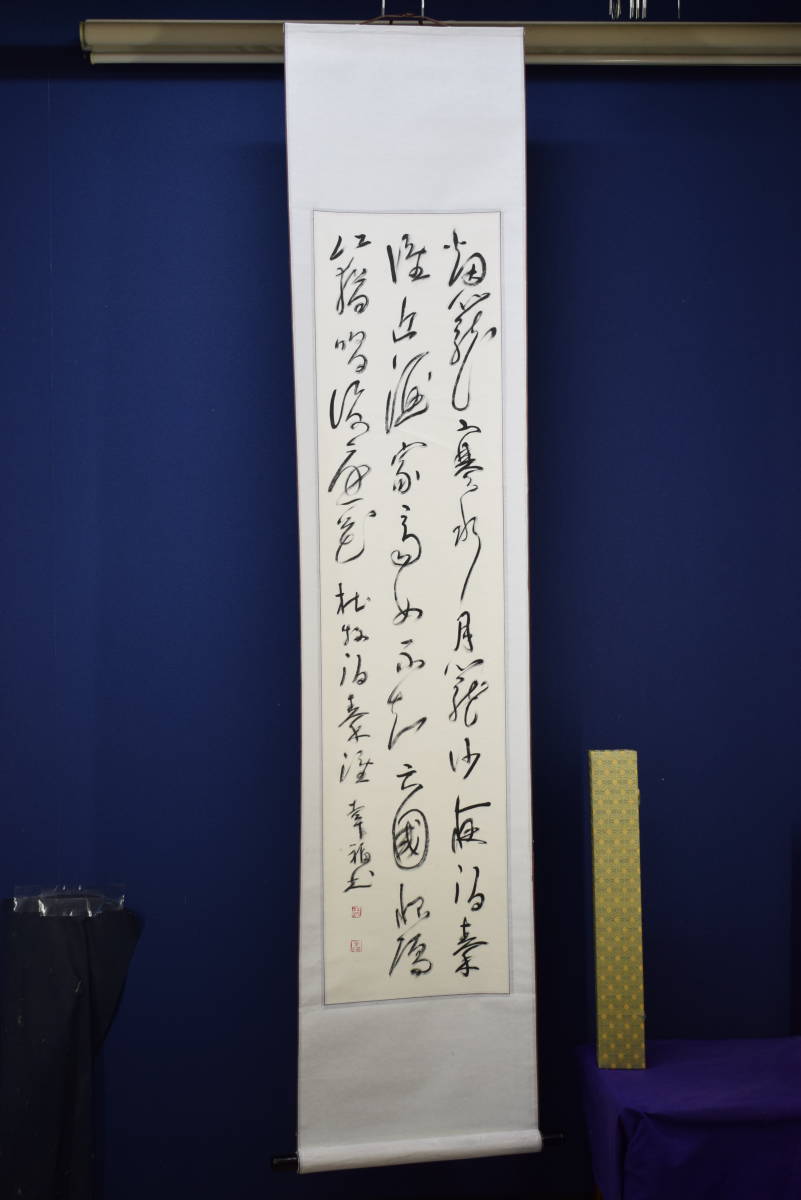 烟籠寒水月籠沙夜泊秦
淮近酒家商女不知亡國恨隔
江猶唱後庭花 杜牧泊秦淮 幸福书